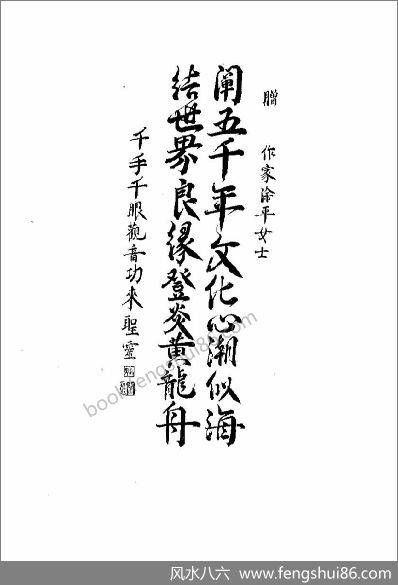 赠 作家涂平女士
阐五千年文化心潮似海
结世界良缘登炎黄龍舟
千手千眼觀音功来聖靈
book.fengshui86.com
风水八六 www.fengshui86.com